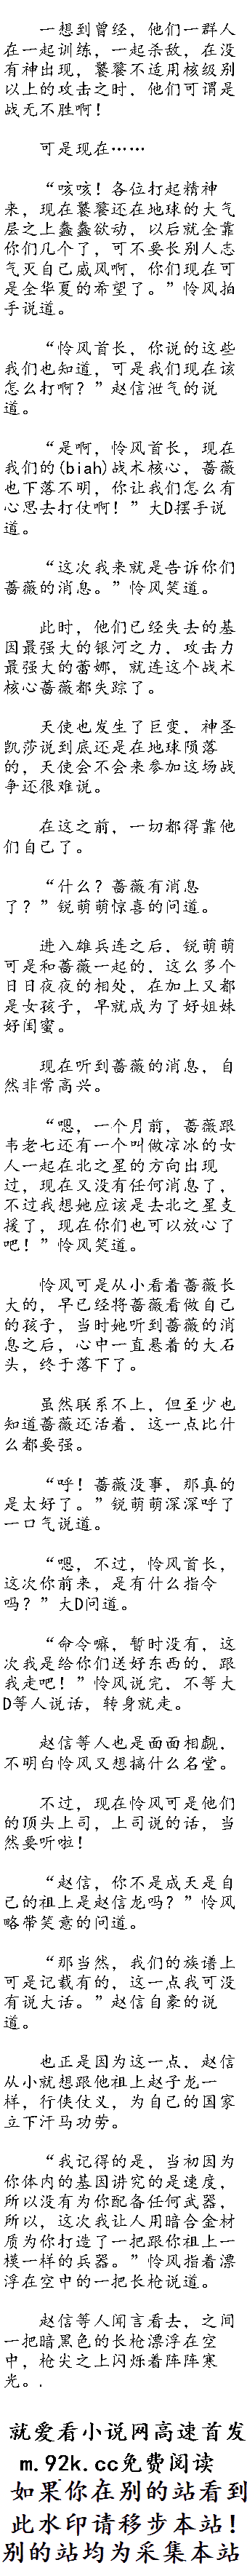 一想到曾经，他们一群人
在一起训练，一起杀敌，在没
有神出现，饕餮不适用核级别
以上的攻击之时，他们可谓是
战无不胜啊！
可是现在……
“咳咳！各位打起精神
来，现在饕餮还在地球的大气
层之上蠢蠢欲动，以后就全靠
你们几个了，可不要长别人志
气灭自己威风啊，你们现在可
是全华夏的希望了。”怜风拍
手说道。
“怜风首长，你说的这些
我们也知道，可是我们现在该
怎么打啊？”赵信泄气的说
道。
“是啊，怜风首长，现在
我们的(biah)战术核心，蔷薇
也下落不明，你让我们怎么有
心思去打仗啊！”大D摆手说
道。
“这次我来就是告诉你们
蔷薇的消息。”怜风笑道。
此时，他们已经失去的基
因最强大的银河之力，攻击力
最强大的蕾娜，就连这个战术
核心蔷薇都失踪了。
天使也发生了巨变，神圣
凯莎说到底还是在地球陨落
的，天使会不会来参加这场战
争还很难说。
在这之前，一切都得靠他
们自己了。
“什么？蔷薇有消息
了？”锐萌萌惊喜的问道。
进入雄兵连之后，锐萌萌
可是和蔷薇一起的，这么多个
日日夜夜的相处，在加上又都
是女孩子，早就成为了好姐妹
好闺蜜。
现在听到蔷薇的消息，自
然非常高兴。
“嗯，一个月前，蔷薇跟
韦老七还有一个叫做凉冰的女
人一起在北之星的方向出现
过，现在又没有任何消息了，
不过我想她应该是去北之星支
援了，现在你们也可以放心了
吧！”怜风笑道。
怜风可是从小看着蔷薇长
大的，早已经将蔷薇看做自己
的孩子，当时她听到蔷薇的消
息之后，心中一直悬着的大石
头，终于落下了。
虽然联系不上，但至少也
知道蔷薇还活着，这一点比什
么都要强。
“呼！蔷薇没事，那真的
是太好了。”锐萌萌深深呼了
一口气说道。
“嗯，不过，怜风首长，
这次你前来，是有什么指令
吗？”大D问道。
“命令嘛，暂时没有，这
次我是给你们送好东西的，跟
我走吧！”怜风说完，不等大
D等人说话，转身就走。
赵信等人也是面面相觑，
不明白怜风又想搞什么名堂。
不过，现在怜风可是他们
的顶头上司，上司说的话，当
然要听啦！
“赵信，你不是成天是自
己的祖上是赵信龙吗？”怜风
略带笑意的问道。
“那当然，我们的族谱上
可是记载有的，这一点我可没
有说大话。”赵信自豪的说
道。
也正是因为这一点，赵信
从小就想跟他祖上赵子龙一
样，行侠仗义，为自己的国家
立下汗马功劳。
“我记得的是，当初因为
你体内的基因讲究的是速度，
所以没有为你配备任何武器，
所以，这次我让人用暗合金材
质为你打造了一把跟你祖上一
模一样的兵器。”怜风指着漂
浮在空中的一把长枪说道。
赵信等人闻言看去，之间
一把暗黑色的长枪漂浮在空
中，枪尖之上闪烁着阵阵寒
光。.
就爱看小说网高速首发
m.92k.cc免费阅读
如果你在别的站看到
此水印请移步本站！
别的站均为采集本站